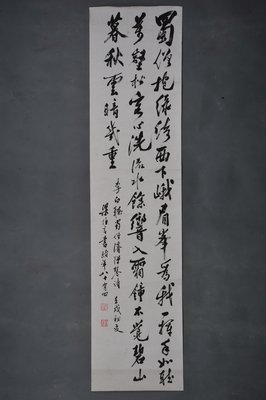 蜀僧抱綠綺西下峨眉峯為我一揮手如聽
萬壑松客心洗流水餘響入霜鐘不覺碧山
暮秋雲暗幾重
李白聽蜀僧濬彈琴詩 壬戌秋文